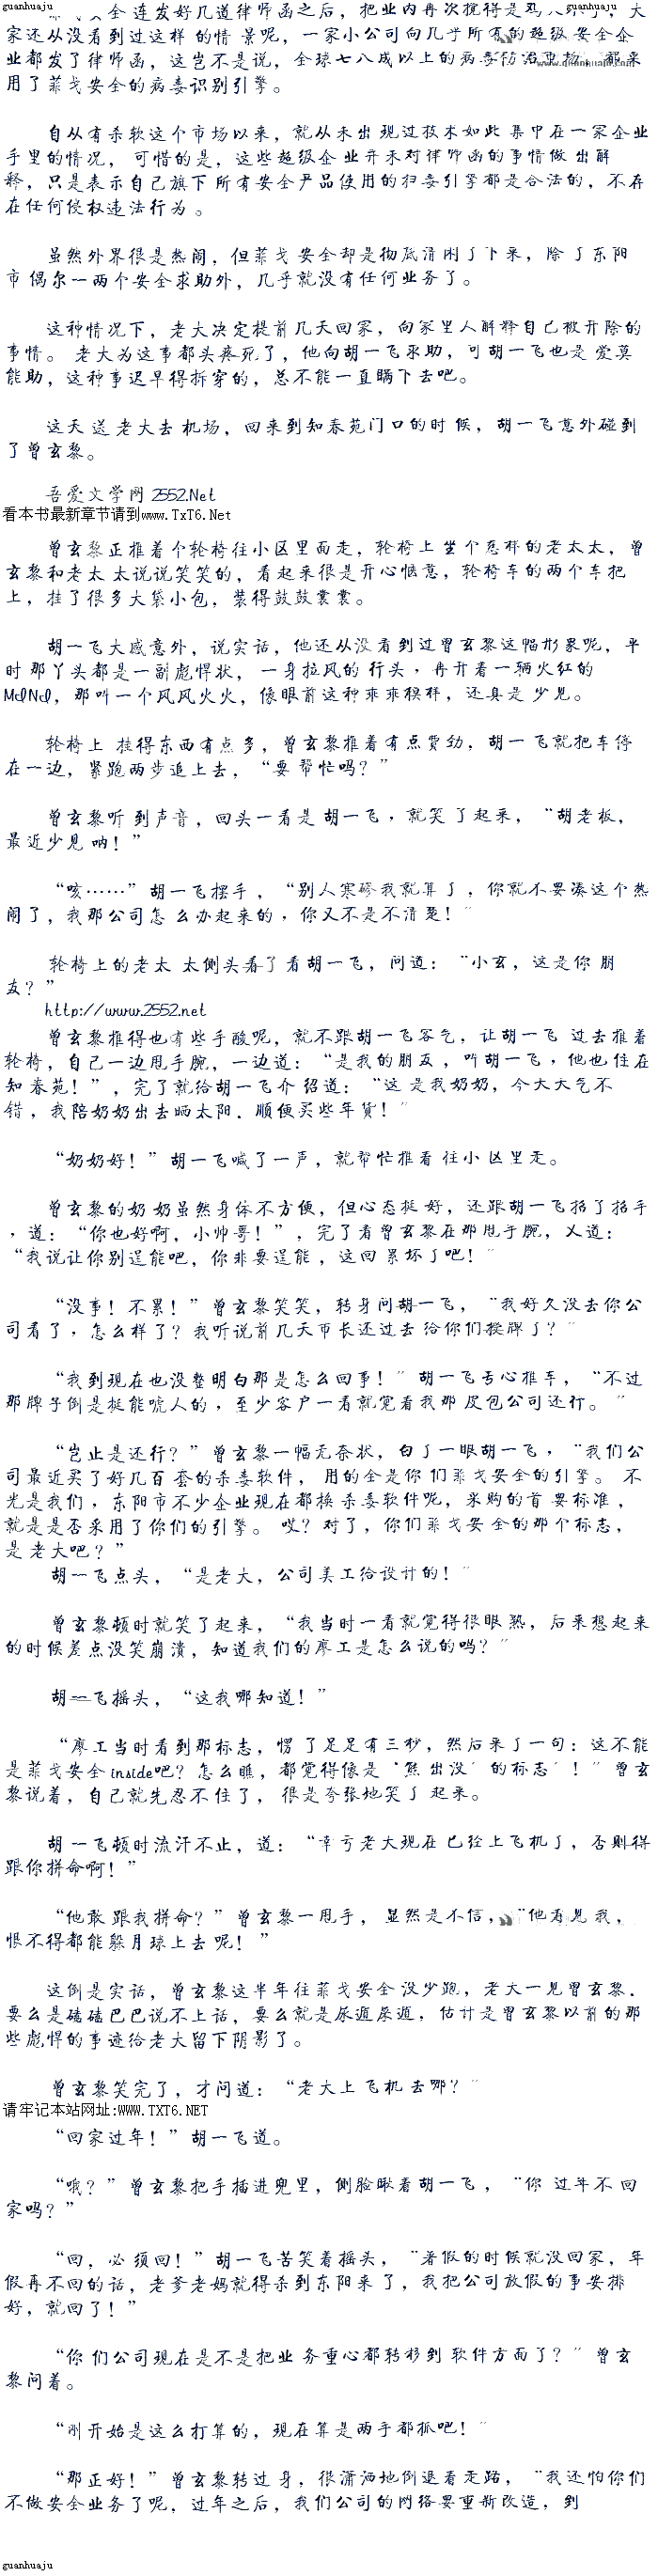 guanhuaju guanhuaju
安全连发好几道律师函之后，把业内再次搅得是鸡犬不宁，大
家还从没看到过这样的情景呢，一家小公司向几乎所有的超级安全企
业都发了律师函，这岂不是说，全球七八成以上的病毒防治市场，都采
www.guanhuaju.com
用了菲戈安全的病毒识别引擎。
自从有杀软这个市场以来，就从未出现过技术如此集中在一家企业
手里的情况，可惜的是，这些超级企业并未对律师函的事情做出解
释，只是表示自己旗下所有安全产品使用的扫毒引擎都是合法的，不存
在任何侵权违法行为。
虽然外界很是热闹，但菲戈安全却是彻底清闲了下来，除了东阳
市偶尔一两个安全求助外，几乎就没有任何业务了。
这种情况下，老大决定提前几天回家，向家里人解释自己被开除的
事情。老大为这事都头疼死了，他向胡一飞求助，可胡一飞也是爱莫
能助，这种事迟早得拆穿的，总不能一直瞒下去吧。
这天送老大去机场，回来到知春苑门口的时候，胡一飞意外碰到
了曾玄黎。
吾爱文学网 2552.Net
看本书最新章节请到www.TxT6.Net
曾玄黎正推着个轮椅往小区里面走，轮椅上坐个慈祥的老太太，曾
玄黎和老太太说说笑笑的，看起来很是开心惬意，轮椅车的两个车把
上，挂了很多大袋小包，装得鼓鼓囊囊。
胡一飞大感意外，说实话，他还从没看到过曾玄黎这幅形象呢，平
时那丫头都是一副彪悍状，一身拉风的行头，再开着一辆火红的
MINI，那叫一个风风火火，像眼前这种乖乖模样，还真是少见。
轮椅上挂得东西有点多，曾玄黎推着有点费劲，胡一飞就把车停
在一边，紧跑两步追上去，“要帮忙吗？”
曾玄黎听到声音，回头一看是胡一飞，就笑了起来，“胡老板，
最近少见呐！”
“咳……”胡一飞摆手，“别人寒碜我就算了，你就不要凑这个热
闹了，我那公司怎么办起来的，你又不是不清楚！”
轮椅上的老太太侧头看了看胡一飞，问道：“小玄，这是你朋
友？”
http://www.2552.net
曾玄黎推得也有些手酸呢，就不跟胡一飞客气，让胡一飞过去推着
轮椅，自己一边甩手腕，一边道：“是我的朋友，叫胡一飞，他也住在
知春苑！”，完了就给胡一飞介绍道：“这是我奶奶，今天天气不
错，我陪奶奶出去晒太阳，顺便买些年货！”
“奶奶好！”胡一飞喊了一声，就帮忙推着往小区里走。
曾玄黎的奶奶虽然身体不方便，但心态挺好，还跟胡一飞招了招手
，道：“你也好啊，小帅哥！”，完了看曾玄黎在那甩手腕，又道：
“我说让你别逞能吧，你非要逞能，这回累坏了吧！”
“没事！不累！”曾玄黎笑笑，转身问胡一飞，“我好久没去你公
司看了，怎么样了？我听说前几天市长还过去给你们授牌了？”
“我到现在也没整明白那是怎么回事！”胡一飞苦心推车，“不过
那牌子倒是挺能唬人的，至少客户一看就觉着我那皮包公司还行。”
“岂止是还行？”曾玄黎一幅无奈状，白了一眼胡一飞，“我们公
司最近买了好几百套的杀毒软件，用的全是你们菲戈安全的引擎。不
光是我们，东阳市不少企业现在都换杀毒软件呢，采购的首要标准，
就是是否采用了你们的引擎。哎？对了，你们菲戈安全的那个标志，
是老大吧？”
胡一飞点头，“是老大，公司美工给设计的！”
曾玄黎顿时就笑了起来，“我当时一看就觉得很眼熟，后来想起来
的时候差点没笑崩溃，知道我们的廖工是怎么说的吗？”
胡一飞摇头，“这我哪知道！”
“廖工当时看到那标志，愣了足足有三秒，然后来了一句：这不能
是菲戈安全inside吧？怎么瞧，都觉得像是‘熊出没’的标志’！”曾玄
黎说着，自己就先忍不住了，很是夸张地笑了起来。
胡一飞顿时流汗不止，道：“幸亏老大现在已经上飞机了，否则得
跟你拼命啊！”
“他敢跟我拼命？”曾玄黎一甩手，显然是不信，“他看见我，
恨不得都能躲月球上去呢！”
这倒是实话，曾玄黎这半年往菲戈安全没少跑，老大一见曾玄黎，
要么是磕磕巴巴说不上话，要么就是尿遁尿遁，估计是曾玄黎以前的那
些彪悍的事迹给老大留下阴影了。
曾玄黎笑完了，才问道：“老大上飞机去哪？”
请牢记本站网址:WWW.TXT6.NET
“回家过年！”胡一飞道。
“哦？”曾玄黎把手插进兜里，侧脸瞅着胡一飞，“你过年不回
家吗？”
“回，必须回！”胡一飞苦笑着摇头，“暑假的时候就没回家，年
假再不回的话，老爹老妈就得杀到东阳来了，我把公司放假的事安排
好，就回了！”
“你们公司现在是不是把业务重心都转移到软件方面了？”曾玄
黎问着。
“刚开始是这么打算的，现在算是两手都抓吧！”
“那正好！”曾玄黎转过身，很潇洒地倒退着走路，“我还怕你们
不做安全业务了呢，过年之后，我们公司的网络要重新改造，到
guanhuaju